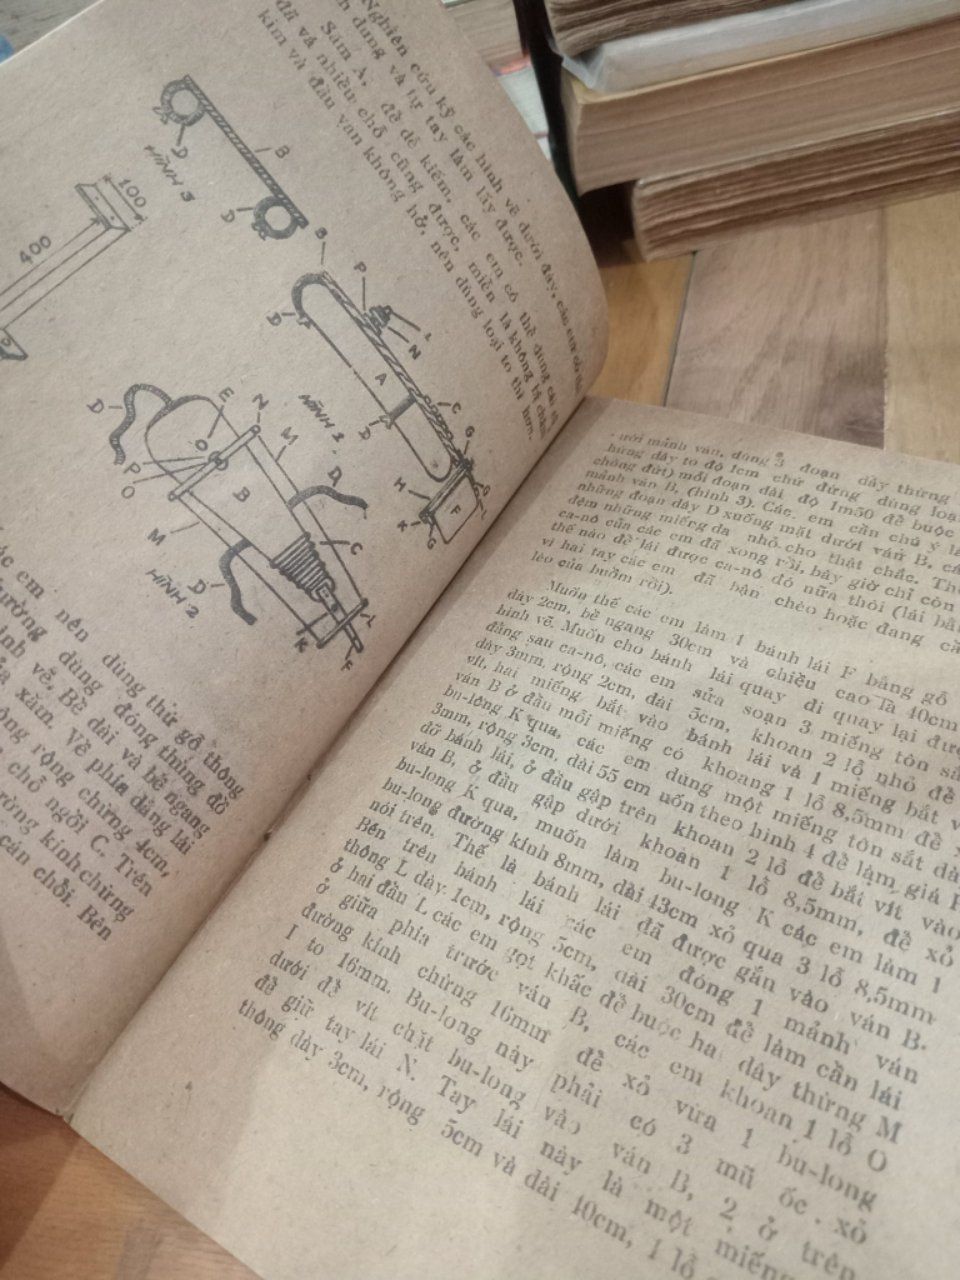 Nghiên cứu kỹ các hình vẽ dưới đây, các em có thể
dung và tự tay làm lấy được.
Săm A, để dễ kiếm, các em có thể dùng cái
đã vá nhiều chỗ cũng được, miễn là không bị châm
kim và đầu van không hở, nên dùng loại to thì hơn.
D
B
D
HÌNH 3
100
400
B
P
L
N
D
A
C
D
G
H
F
K
G
HÌNH 1
D
E
N
M
D
O
P
O
B
M
C
D
L
K
F
HÌNH 2
các em nên dùng thứ gỗ thông
thường dùng đóng thùng đồ
hình vẽ. Bề dài và bề ngang
xăm. Về phía đằng lái
rộng chừng 4cm,
chỗ ngồi C. Trên
đường kính chừng
cán chổi. Bên
dưới mảnh ván, đóng 3 đoạn dây thừng
thừng dây to độ 1cm chứ đừng dùng loại
chóng đứt) mỗi đoạn dài độ 1m50 để buộc
mảnh ván B, (hình 3). Các em cần chú ý là
những đoạn dây D xuống mặt dưới ván B, cá
đệm những miếng da nhỏ cho thật chắc. Thế
ca-nô của các em đã xong rồi, bây giờ chỉ còn
thế nào để lái được ca-nô đó nữa thôi (lái bằ
vì hai tay các em đã bận chèo hoặc đang cầ
lèo của buồm rồi).
Muốn thế các em làm 1 bánh lái F bằng gỗ
dày 2cm, bề ngang 30cm và chiều cao là 40cm
hình vẽ. Muốn cho bánh lái quay đi quay lại đượ
đằng sau ca-nô, các em sửa soạn 3 miếng tôn sắ
dày 3mm, rộng 2cm, dài 5cm, khoan 2 lỗ nhỏ để
vít, hai miếng bắt vào bánh lái và 1 miếng bắt v
ván B ở đầu mỗi miếng có khoang 1 lỗ 8,5mm để x
bu-lông K qua, các em dung một miếng tôn sắt dà
3mm, rộng 3cm, dài 55 cm uốn theo hình 4 để làm giá
đỡ bánh lái, ở đầu gập trên khoan 2 lỗ để bắt vít vào
ván B, ở đầu gập dưới khoan 1 lỗ 8,5mm, để xỏ
bu-long K qua, muốn làm bu-long K các em làm 1
bu-long đường kính 8mm, dài 43cm xỏ qua 3 lỗ 8,5mm
nói trên. Thế là bánh lái đã được gắn vào ván B.
Bên trên bánh lái các em đóng 1 mảnh ván
thông L dày 1cm, rộng 5cm, dài 30cm để làm cần lái
ở hai đầu L các em gọt khấc để buộc hai dây thừng M
ở giữa phía trước ván B, các em khoan 1 lỗ O
đường kính chừng 16mm để xỏ vừa 1 bu-long
I to 16mm. Bu-long này phải có 3 mũ ốc, xỏ
dưới để vít chặt bu-long vào ván B, 2 ở trên
để giữ tay lái N. Tay lái này là một miếng
thông dày 3cm, rộng 5cm và dài 40cm, 1 lỗ